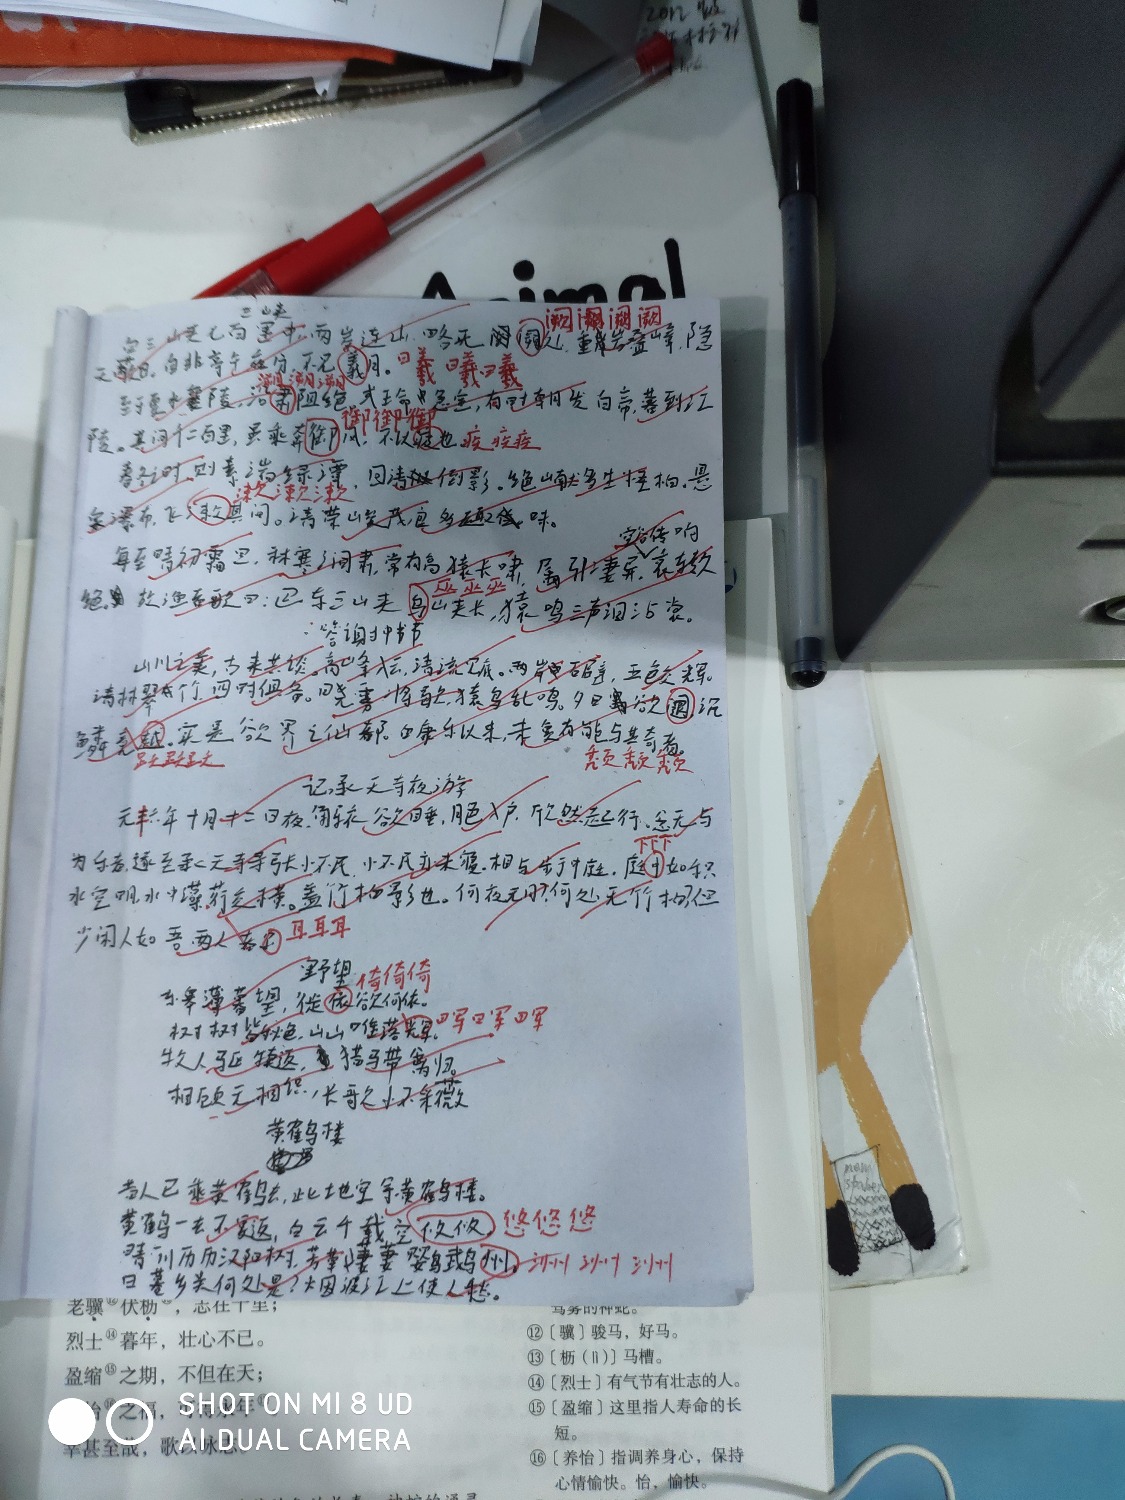 2012
Animal
三峡
自三峡七百里中,两岸连山,略无阙阙处,重岩叠嶂,隐
阙 阙 阙 阙
天蔽日。自非亭午夜分,不见羲月。
曦 曦 曦
至于夏水襄陵,沿溯阻绝,或王命急宣,有时朝发白帝,暮到江
溯 溯 溯
御 御 御
陵。其间千二百里,虽乘奔御风,不以疾也
疾 疾 疾
春冬之时,则素湍绿潭,回清倒影。绝巘多生怪柏,悬
漱 漱 漱
泉瀑布,飞漱其间。清荣峻茂,良多趣味。
空谷传响
每至晴初霜旦,林寒涧肃,常有高猿长啸,属引凄异,哀转久
巫 巫 巫
绝。故渔者歌曰:巴东三峡巫峡长,猿鸣三声泪沾裳。
答谢中书书
山川之美,古来共谈。高峰入云,清流见底。两岸石壁,五色交辉。
青林翠竹,四时俱备。晓雾将歇,猿鸟乱鸣。夕日欲,沉
鳞竞。实是欲界之仙都。自康乐以来,未复有能与其奇者。
跃 跃 跃
颓 颓 颓
记承天寺夜游
元丰六年十月十二日夜,解衣欲睡,月色入户,欣然起行。念无与
下下下
为乐者,遂至承天寺寻张怀民,怀民亦未寝。相与步于中庭。庭中如积
水空明,水中藻荇交横。盖竹柏影也。何夜无月?何处无竹柏?但
少闲人如吾两人者
耳 耳 耳
野望
倚 倚 倚
东皋薄暮望,徙欲何依。
树树皆秋色,山山唯落晖。
晖 晖 晖
牧人驱犊返,猎马带禽归。
相顾无相识,长歌怀采薇
黄鹤楼
昔人已乘黄鹤去,此地空余黄鹤楼。
黄鹤一去不复返,白云千载空悠悠。
悠 悠 悠
晴川历历汉阳树,芳草萋萋鹦鹉州。
洲 洲 洲
日暮乡关何处是?烟波江上使人愁。
老骥⑫伏枥⑬,志在千里;
烈士⑭暮年,壮心不已。
盈缩⑮之期,不但在天;
之福,
幸甚至哉,歌以咏志。
驾雾的神蛇。
⑫〔骥〕骏马,好马。
⑬〔枥(lì)〕马槽。
⑭〔烈士〕有气节有壮志的人。
⑮〔盈缩〕这里指人寿命的长
短。
⑯〔养怡〕指调养身心,保持
心情愉快。怡,愉快。
SHOT ON MI 8 UD
AI DUAL CAMERA